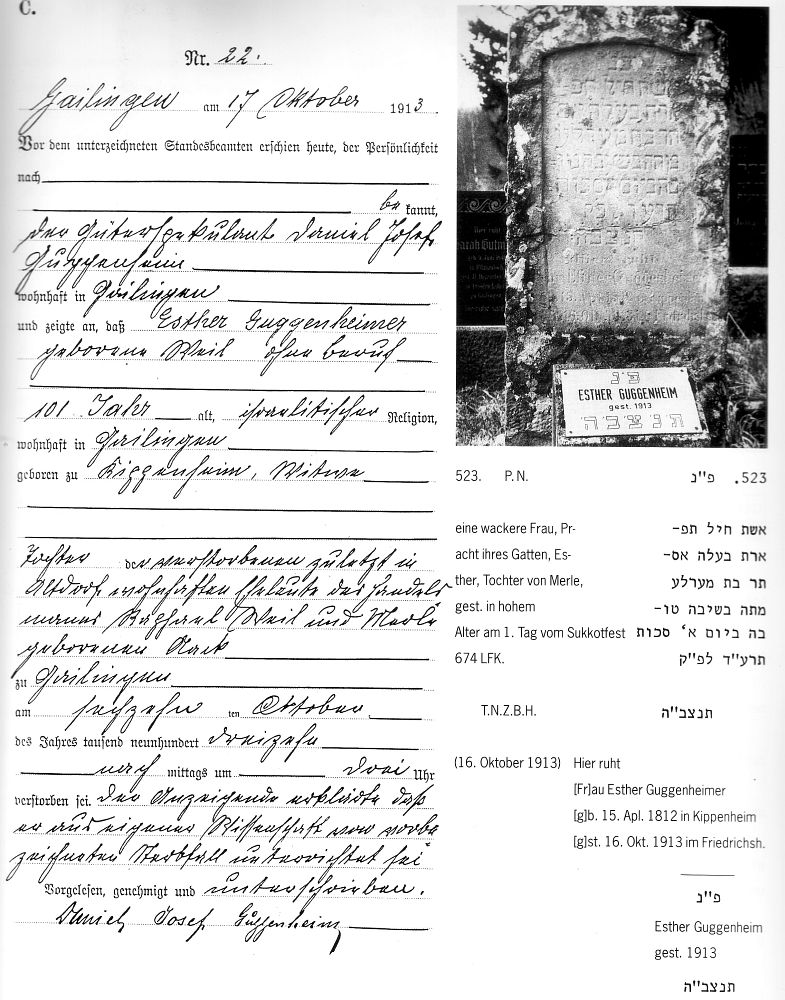 C.
Nr. 22.
Gailingen am 17 Oktober 1913.
Vor dem unterzeichneten Standesbeamten erschien heute, der Persönlichkeit
nach
be kannt,
der Güterspekulant Daniel Josef
Guggenheim
wohnhaft in Gailingen
und zeigte an, daß Esther Guggenheimer
geborene Weil ohne Beruf
101 Jahr alt, israelitischer Religion,
wohnhaft in Gailingen
geboren zu Kippenheim, Witwe
Tochter der verstorbenen zuletzt in
Altdorf wohnhaften Eheleute des Handels
mannes Raphael Weil und Merle
geborenen
zu Gailingen
am sechzehn ten Oktober
des Jahres tausend neunhundert dreizehn
nach mittags um drei Uhr
verstorben sei. Der Anzeigende erklärte daß
er aus eigener Wissenschaft von vorbe
zeichneten Sterbfall unterrichtet sei
Vorgelesen, genehmigt und unterschrieben.
Daniel Josef Guggenheim
פ נ
ESTHER GUGGENHEIM
gest. 1913
ת נ צ ב ה
523. P. N.
523. פ״נ
eine wackere Frau, Pr-
אשת חיל תפ-
acht ihres Gatten, Es-
ארת בעלה אס-
ther, Tochter von Merle,
תר בת מערלע
gest. in hohem
מתה בשיבה טו-
Alter am 1. Tag vom Sukkotfest
בה ביום א׳ סכות
674 LFK.
תרע״ד לפ״ק
T.N.Z.B.H.
תנצב״ה
(16. Oktober 1913) Hier ruht
[Fr]au Esther Guggenheimer
[g]b. 15. Apl. 1812 in Kippenheim
[g]st. 16. Okt. 1913 im Friedrichsh.
פ״נ
Esther Guggenheim
gest. 1913
תנצב״ה